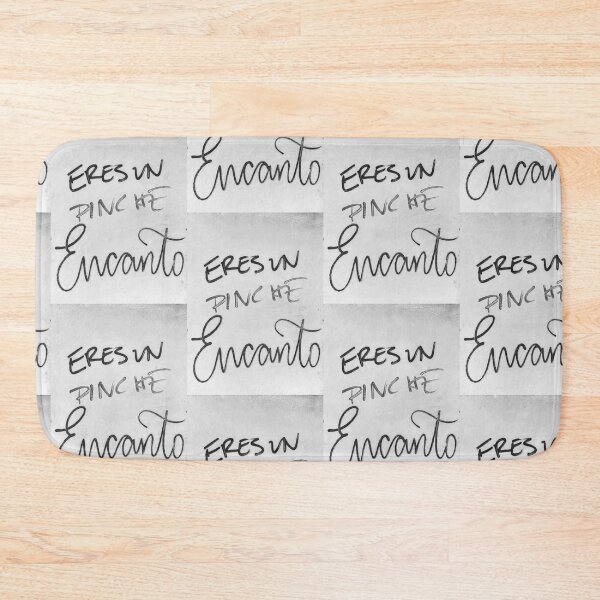 ERES UN
PINCHE
Encanto
ERES UN
PINCHE
Encanto
Encanto
ERES UN
PINCHE
Encanto
ERES UN
ERES UN
PINCHE
Encanto
ERES UN
PINCHE
Encanto
Encan
ERES UN
PINCHE
Encant
ERES UN